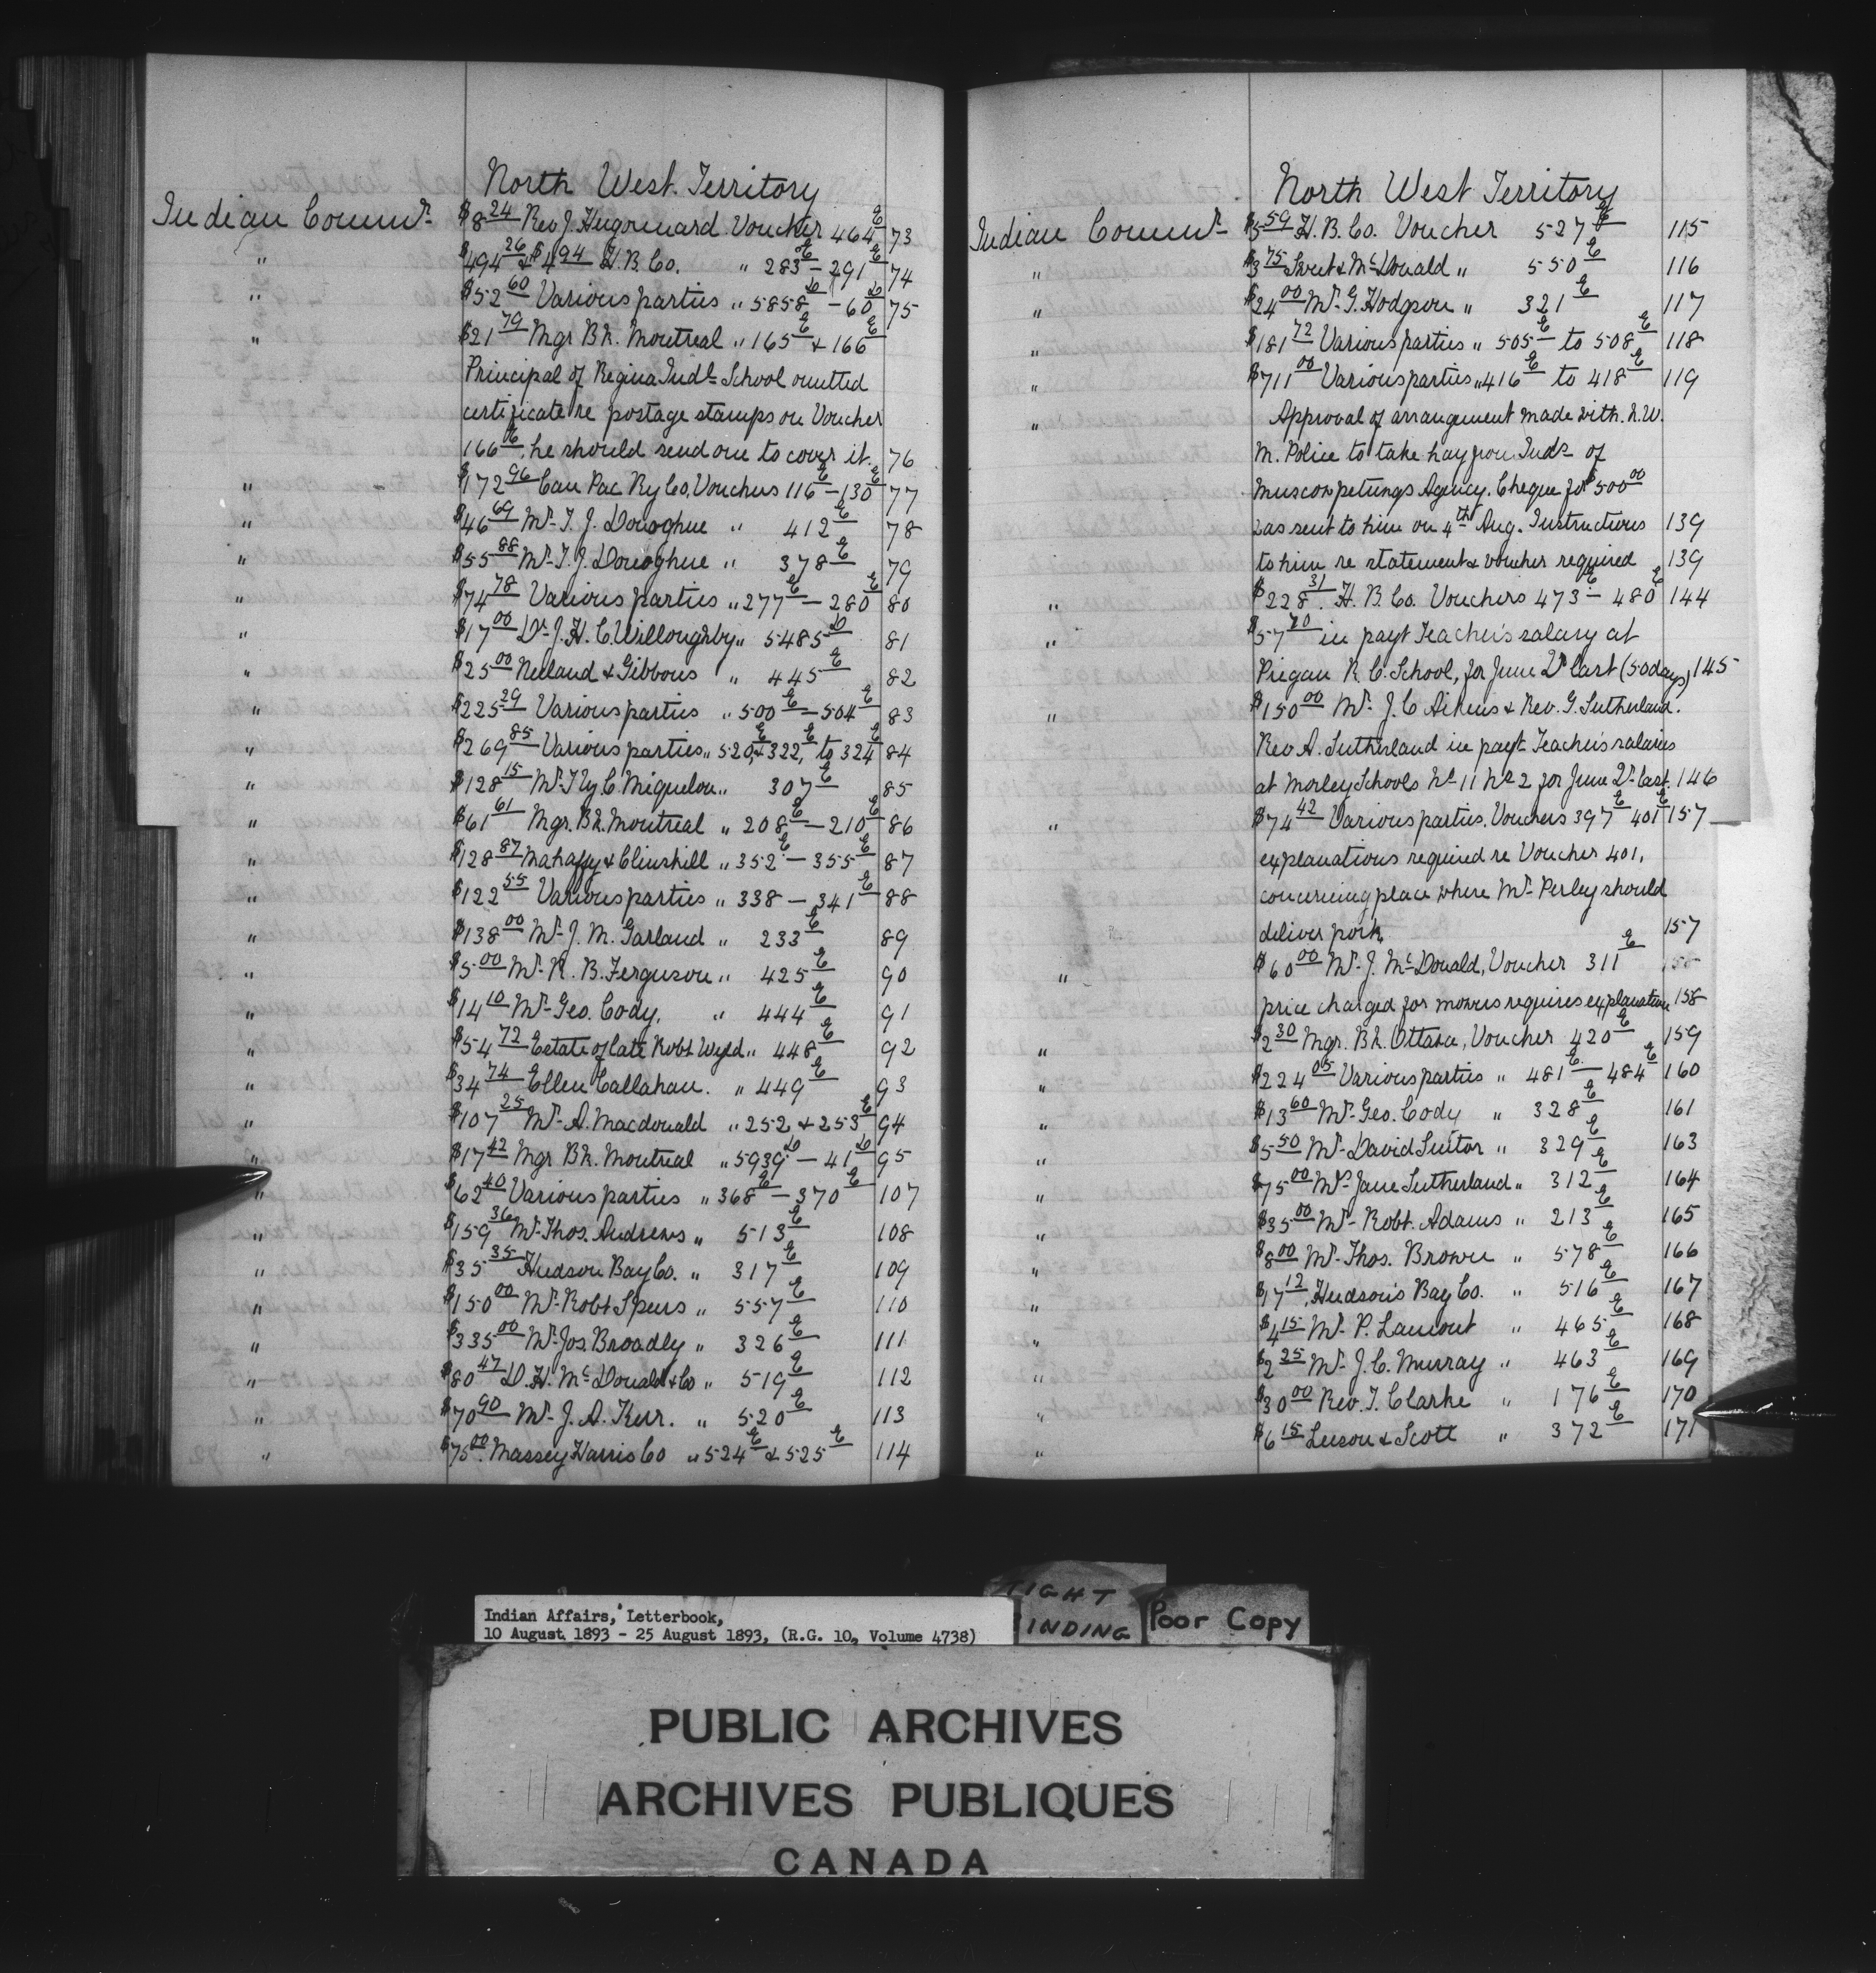 North West Territory
Indian Commr. $8.24 Rev J. Hugonnard Voucher 464E 73
" $494.26 & $4.94 H. B. Co. " 283E – 291E 74
" $52.60 Various parties " 5858D – 60D 75
" $21.79 Mgr Bk. Montreal " 165E & 166E
Principal of Regina Indl School omitted
certificate re postage stamps on Voucher
166E, he should send one to cover it. 76
" $172.96 Can Pac Ry Co, Vouchers 116E – 130E 77
" $46.69 Mr. T. J. Donoghue " 412E 78
" $55.88 Mr. T. J. Donoghue " 378E 79
" $74.78 Various parties " 277E – 280E 80
" $17.00 Dr. J. H. C. Willoughby " 5485D 81
" $25.00 Neeland & Gibbons " 445E 82
" $225.29 Various parties " 500E – 504E 83
" $269.85 Various parties " 520E, & 322E, to 324E 84
" $128.15 Mr. Hy C. Miquelon " 307E 85
" $61.61 Mgr. Bk. Montreal " 208E – 210E 86
" $128.87 Mahaffy & Clinskill " 352E – 355E 87
" $122.55 Various parties " 338 – 341E 88
" $138.00 Mr. J. M. Garland " 233E 89
" $5.00 Mr. R. B. Ferguson " 425E 90
" $14.10 Mr. Geo. Cody, " 444E 91
" $54.72 Estate of late Robt Wyld " 448E 92
" $34.74 Ellen Callahan. " 449E 93
" $107.25 Mr. A. Macdonald " 252 & 253E 94
" $17.42 Mgr Bk. Montreal " 5939D – 41D 95
" $62.40 Various parties " 368E – 370E 107
" $159.36 Mr. Thos. Andrews " 513E 108
" $35.35 Hudson Bay Co. " 317E 109
" $150.00 Mr. Robt Speers " 557E 110
" $335.00 Mr. Jos. Broadly " 326E 111
" $80.47 D. H. McDonald & Co " 519E 112
" $70.90 Mr. J. A. Kerr. " 520E 113
" $75.00 Massey Harris Co " 524E & 525E 114
North West Territory
Indian Commr. $5.59 H. B. Co. Voucher 527E 115
" $3.75 & McDonald " 550E 116
" $24.00 Mr. G. Hodgson " 321E 117
" $181.72 Various parties " 505E to 508E 118
" $711.00 Various parties " 416E to 418E 119
" Approval of arrangement made with N. W.
M. Police to take hay from Inds of
Muscowpetungs Agency. Cheque for $500.00
was sent to him on 4th Aug. Instructions 139
to him re statement & voucher required 139
" $228.31. H. B. Co. Vouchers 473E – 480E 144
" $57.70 in payt Teacher's salary at
Piegan R. C. School, for June Qr last (50 days) 145
" $150.00 Mr. J. C Aikins & Rev. G. Sutherland.
Rev A. Sutherland in payt Teacher's salaries
at Morley Schools No 1 & No 2 for June Qr last. 146
" $74.42 Various parties, Vouchers 397E 401E 157
explanations required re Voucher 401,
concerning place where Mr. Perley should
deliver pork, 157
" $60.00 Mr. J. McDonald, Voucher 311E 158
price charged for mowers requires explanation 158
" $2.30 Mgr. Bk. Ottawa, Voucher 420E 159
" $224.05 Various parties " 481E – 484E 160
" $13.60 Mr. Geo. Cody " 328E 161
" $5.50 Mr. David Suitor " 329E 163
" $75.00 Mrs Jane Sutherland " 312E 164
" $35.00 Mr. Robt. Adams " 213E 165
" $8.00 Mr. Thos. Brown " 578E 166
" $17.12, Hudson's Bay Co. " 516E 167
" $4.15 Mr. P. Lamont " 465E 168
" $2.25 Mr. J. C. Murray " 463E 169
" $30.00 Rev. T. Clarke " 176E 170
" $6.15 Leeson & Scott " 372E 171
TIGHT
INDING
Poor Copy
Indian Affairs, Letterbook,
10 August 1893 - 25 August 1893, (R.G. 10, Volume 4738)
PUBLIC ARCHIVES
ARCHIVES PUBLIQUES
CANADA